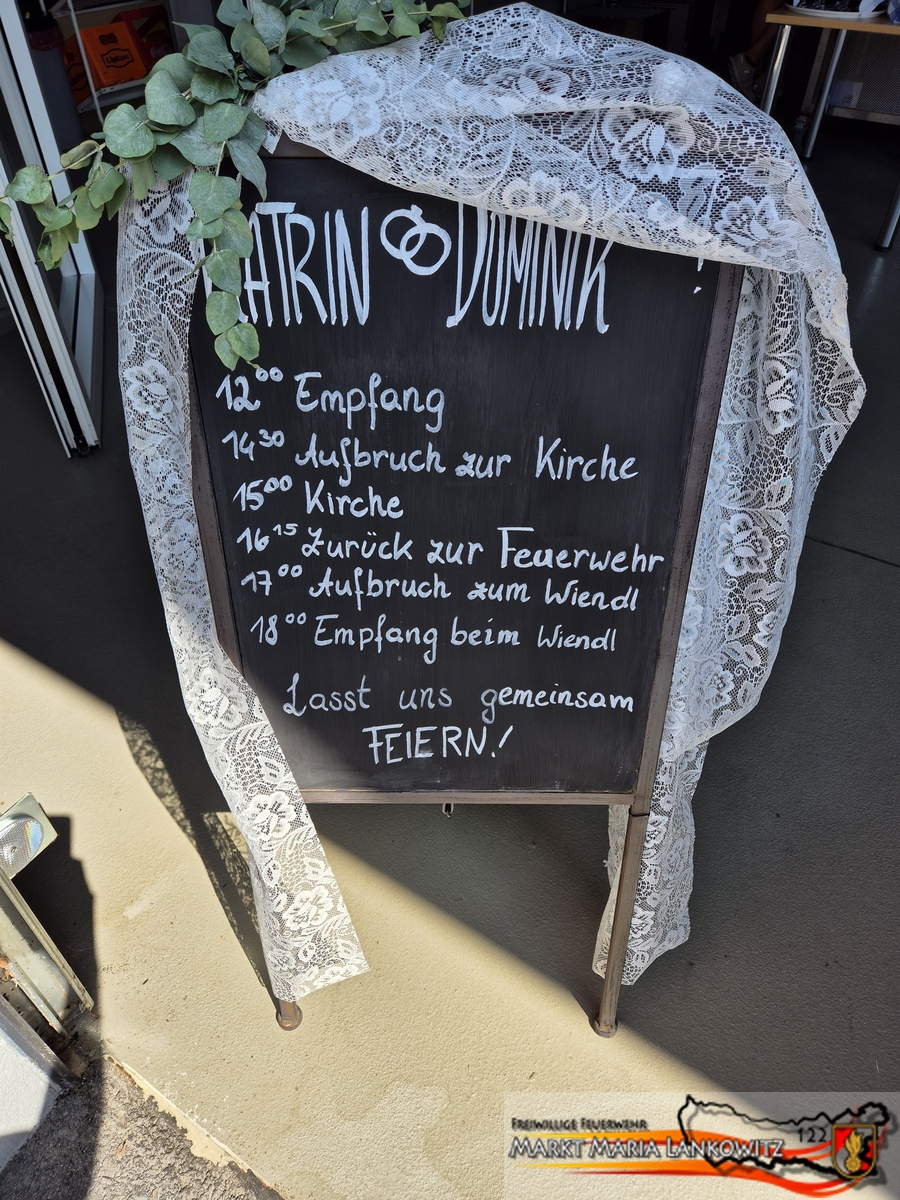 KATRIN DOMINIK
12⁰⁰ Empfang
14³⁰ Aufbruch zur Kirche
15⁰⁰ Kirche
16¹⁵ Zurück zur Feuerwehr
17⁰⁰ Aufbruch zum Wiendl
18⁰⁰ Empfang beim Wiendl
Lasst uns gemeinsam
FEIERN!
Lipton
FREIWILLIGE FEUERWEHR
MARKT MARIA LANKOWITZ
122